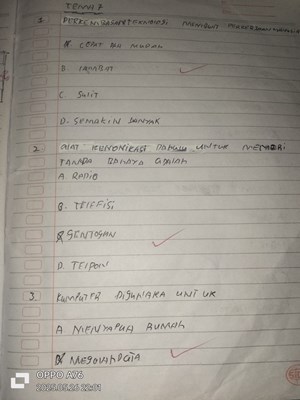 TEMA 7
1 PERKEMBANGAN TEKNOLOGI MEMBUAT PEKERJAAN
A. CEPAT DAN MUDAH
B. LAMBAT
C. SULIT
D. SEMAKIN BANYAK
2. ALAT KUNONIKASI DAHULU UNTUK MEMBERI
TANDA BAHAYA ADALAH
A RADIO
B. TELEFISI
C KENTONGAN
D. TELPON
3. KOMPUTER DIGUNAKA UNTUK
A MENYAPUH RUMAH
B MEGOLAH DATA
OPPO A76
2025.05.26 22:01